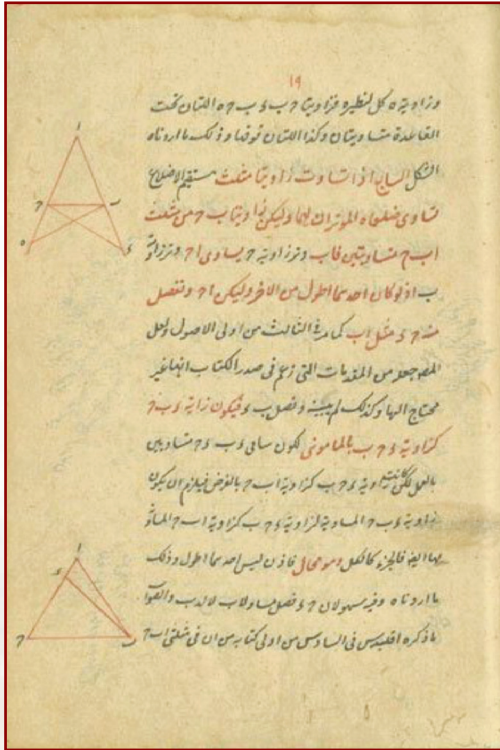 ١٩
وزاوية ه كل لنظيره فزاويتا ح ب ء ب ح ه اللتان تحت
القاعدة متساويتان وكذا اللتان فوقها وذلك ما اردناه
الشكل السابع اذا تساوت زاويتا مثلث مستقيم الاضلاع
تساوى ضلعاه الموتران لهما وليكن زاويتا ب ح من مثلث
اب ح متساويتين فاب وتر زاوية ح يساوى اح وتر زاوية
ب اذ لو كان احدهما اطول من الاخر وليكن اح ونفصل
منه ح ء مثل اب كما مر فى الثالث من اولى الاصول ولعل
المص جعله من المقدمات التى زعم فى صدر الكتاب انها غير
محتاج اليها وكذلك لم يبينه ونصل ب ء فيكون زاوية ء ب ح
كزاوية ء ح ب بالمامونى لكون ساقى ء ب ء ح متساويين
بالعمل لكن زاوية ء ح ب كزاوية اب ح بالفرض فيلزم ان يكون
زاوية ء ب ح المساوية لزاوية ء ح ب كزاوية اب ح
فالجزء كالكل وهو محال فاذن ليس احدهما اطول وذلك
ما اردناه وفيه سهو لان ح ء فصل مساويا لاب لا لء ب
ما ذكره اقليدس فى السادس من اولى كتابه من ان فى مثلثى اب ح
ا
ح
ب
ه
ء
ا
ء
ح
ب